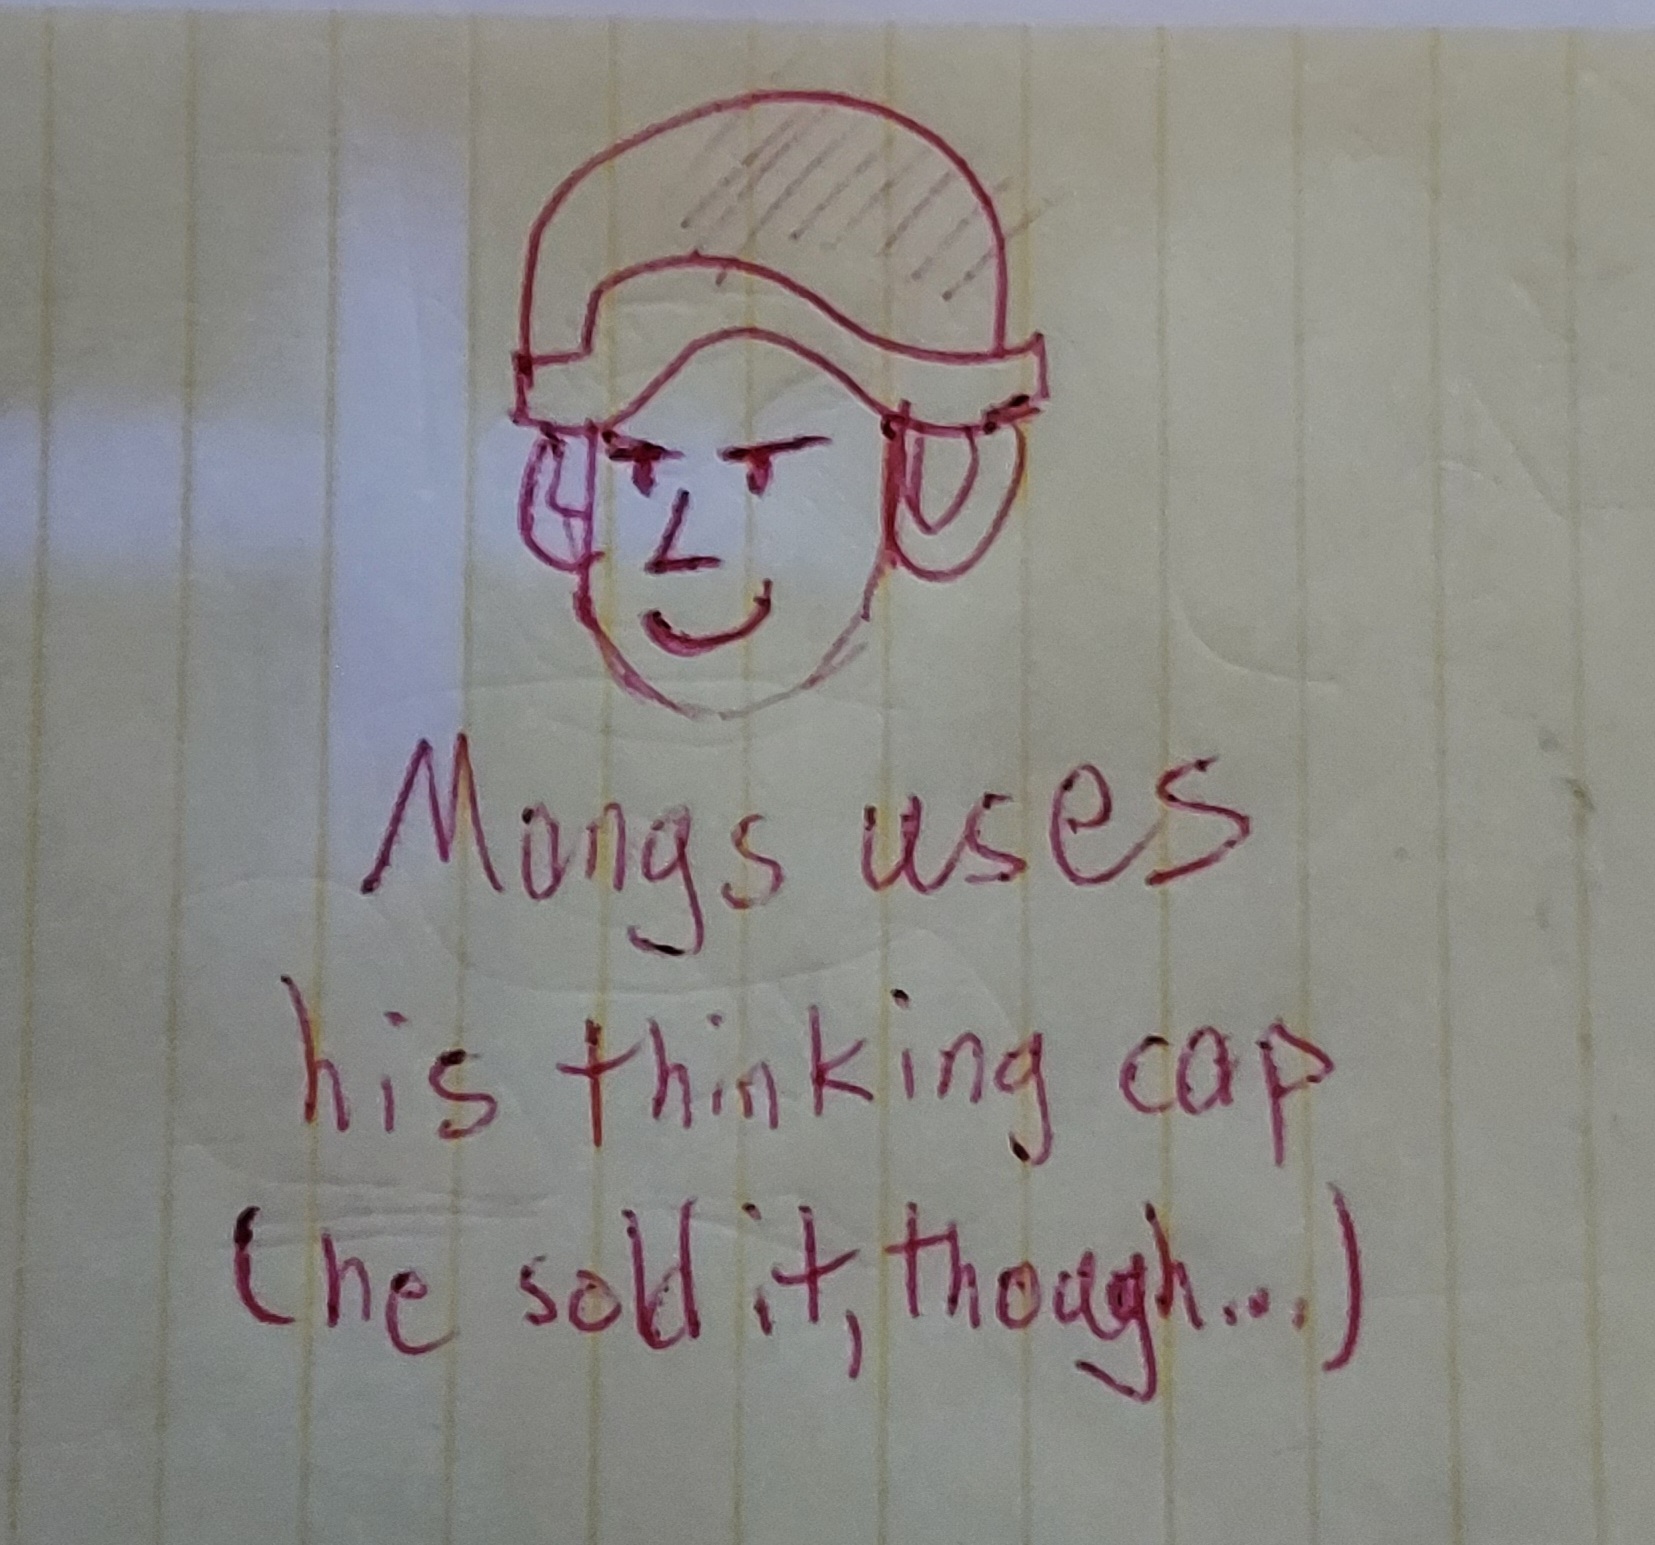 Mongs uses
his thinking cap
(he sold it, though...)